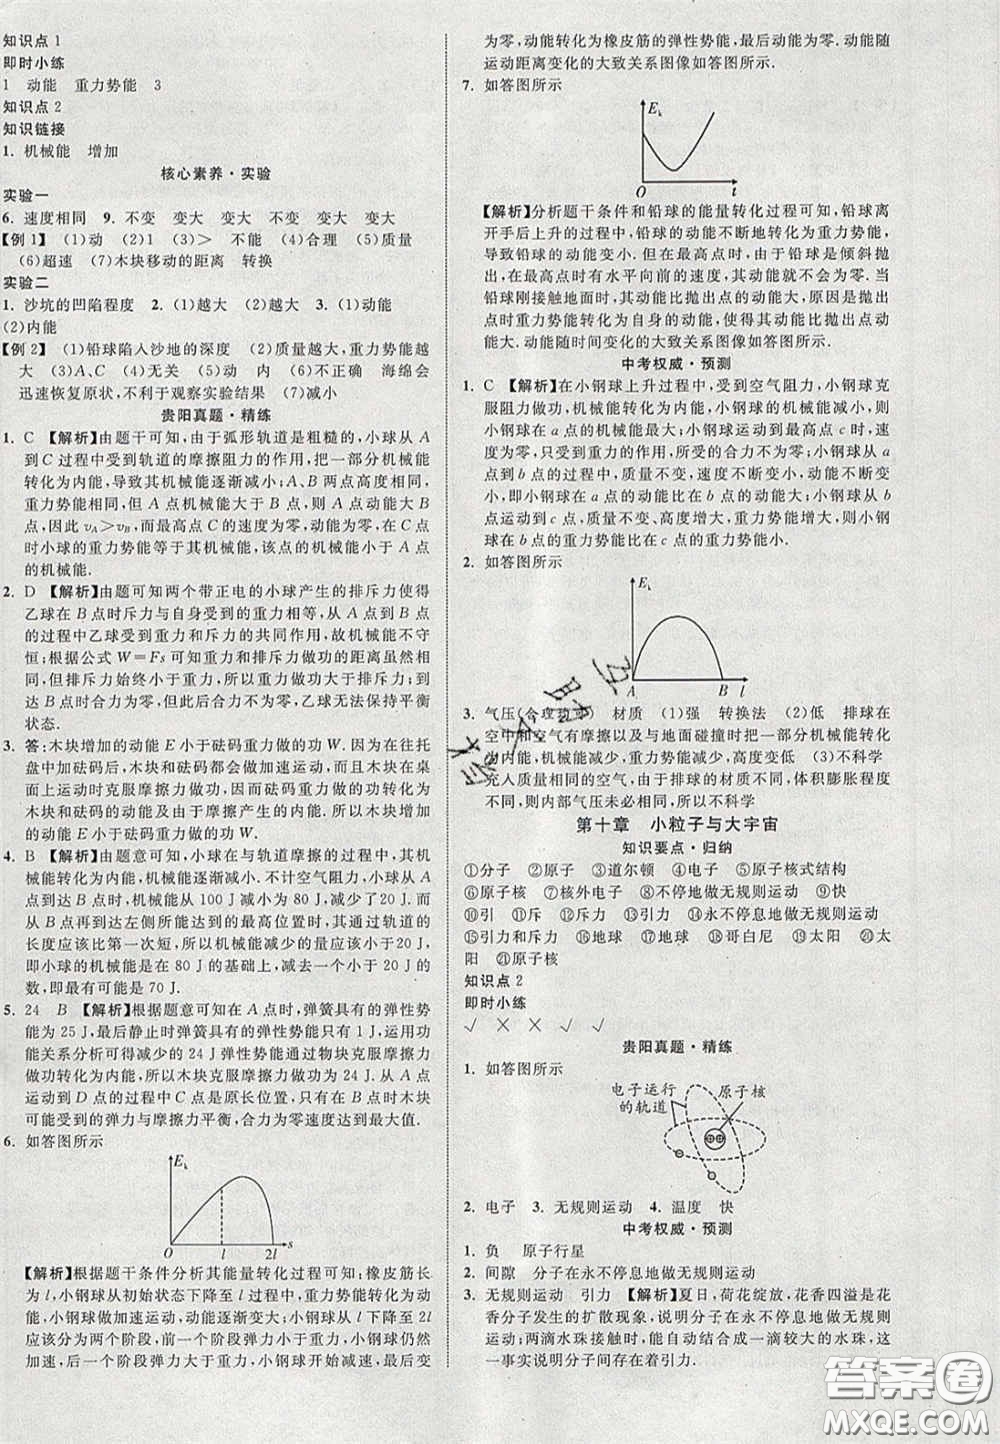 知识点1
即时小练
1 动能 重力势能 3
知识点2
知识链接
1. 机械能 增加
核心素养·实验
实验一
6. 速度相同 9. 不变 变大 变大 不变 变大 变大
【例1】 (1)动 (2)1 (3)> 不能 (4)合理 (5)质量
(6)超速 (7)木块移动的距离 转换
实验二
1. 沙坑的凹陷程度 2. (1)越大 (2)越大 3. (1)动能
(2)内能
【例2】 (1)铅球陷入沙地的深度 (2)质量越大,重力势能越
大 (3)A、C (4)无关 (5)动 内 (6)不正确 海绵会
迅速恢复原状,不利于观察实验结果 (7)减小
贵阳真题·精练
1. C 【解析】由题干可知,由于弧形轨道是粗糙的,小球从 A
到 C 过程中受到轨道的摩擦阻力的作用,把一部分机械能
转化为内能,导致其机械能逐渐减小;A、B 两点高度相同,
重力势能相同,但 A 点机械能大于 B 点,则 A 点动能大 B
点,因此 vA>vB,而最高点 C 的速度为零,动能为零,在 C 点
时小球的重力势能等于其机械能,该点的机械能小于 A 点
的机械能.
2. D 【解析】由题意可知两个带正电的小球产生的排斥力使得
乙球在 B 点时斥力与自身受到的重力相等,从 A 点到 B 点
的过程中乙球受到重力和斥力的共同作用,故机械能不守
恒;根据公式 W=Fs 可知重力和排斥力做功的距离虽然相
同,但排斥力始终小于重力,所以重力做功大于排斥力;到
达 B 点时合力为零,但速度不为零,乙球无法保持平衡
状态.
3. 答:木块增加的动能 E 小于砝码重力做的功 W. 因为在往托
盘中加砝码时,木块和砝码都会做加速运动,而木块在桌
面上运动时克服摩擦力做功,因此砝码做的功转化为了
木块和砝码的动能及由于摩擦产生的内能,所以木块增加
的动能 E 小于砝码重力做的功 W.
4. B 【解析】由题意可知,小球在与轨道摩擦的过程中,其机械
能转化为内能,机械能逐渐减小. 不计空气阻力时,小球第一
次到达右侧最高点时,机械能从 100 J 减为 80 J,减少了 20 J. 而
从 B 点再到达左侧所能达到的最高位置时,其通过轨道的
长度应比第一次短,所以机械能减少的量小于 20 J,
即小球的机械能是在 80 J 的基础上,减去一个不大于 20 J
的数,即最有可能是 70 J.
5. 24 B 【解析】根据题意可知在 A 点时,弹簧具有的弹性势
能为 25 J,最后静止时弹簧具有的弹性势能只有 1 J,运用功
能关系分析可得减少的 24 J 弹性势能通过物块克服摩擦力
做功转化为内能,所以物块克服摩擦力做功为 24 J. 从 A 点
运动到 D 点的过程中 C 点是原长位置,只有在 B 点时木块
受到的弹力与摩擦力平衡,合力为零速度达到最大值.
6. 如答图所示
Ek
O l 2l s
【解析】根据题干条件分析其能量转化过程可知:橡皮筋长
为 l,小钢球从初始状态下降至 l 过程中,重力势能转化为
动能,小钢球做加速运动;小钢球从 l 下降至 2l
应该分为两个阶段,前一个阶段弹力小于重力,小钢球仍然
加速,后一个阶段弹力大于重力,小钢球开始减速,最后变
为零,动能转化为橡皮筋的弹性势能,最后动能为零. 动能随
运动距离变化的大致关系图像如答图所示.
7. 如答图所示
Ek
O t
【解析】分析题干条件和铅球的能量转化过程可知,铅球离
开手后上升的过程中,铅球的动能不断地转化为重力势能,
导致铅球的动能变小. 但在最高点时,由于铅球是倾斜抛
出,在最高点时有水平向前的速度,其动能不会为零. 当
铅球刚接触地面时,其动能比抛出点的动能大,原因是抛出
点时重力势能转化为自身的动能,所以落地时动能大于抛出
点. 动能随时间变化的大致关系图像如答图所示.
中考权威·预测
1. C 【解析】在小钢球上升过程中,受到空气阻力,小钢球克
服阻力做功,机械能转化为内能,小钢球的机械能减小,则
小钢球在 a 点的机械能最大;小钢球到最高点 c 时,速度
为零,只受重力的作用,所受的合力不为零;小钢球从 a
点到 b 点的过程中,质量不变、速度不断变小,动能不断变
小,即小钢球在 a 点的动能比在 b 点的动能大;小钢球从 b
点运动到 c 点,质量不变、高度增大,重力势能增大,则小钢
球在 b 点的重力势能比在 c 点的重力势能小.
2. 如答图所示
Ek
A B l
3. 气压(合理均可) 材质 (1)强 转换法 (2)低 排球在
空中和空气有摩擦以及与地面碰撞时,一部分机械能转化
为内能,机械能减少,重力势能减少,高度变低 (3)不科学
充入质量相同的空气,由于排球的材质不同,体积膨胀程度
不同,则内部气压未必相同,所以不科学
第十章 小粒子与大宇宙
知识要点·归纳
①分子 ②原子 ③道尔顿 ④电子 ⑤原子核式结构
⑥原子核 ⑦核外电子 ⑧不停地做无规则运动 ⑨快
⑩引 ⑪斥 ⑫引力 ⑬斥力 ⑭永不停息地做无规则运动
⑮引力和斥力 ⑯地球 ⑰地球 ⑱哥白尼 ⑲太阳 ⑳太
阳 ㉑原子核
知识点2
即时小练
√ × × √ ×
贵阳真题·精练
1. 如答图所示
电子运行的轨道
原子核
2. 电子 3. 无规则运动 4. 温度 快
中考权威·预测
1. 负 原子行星
2. 间隙 分子在永不停息地做无规则运动
3. 无规则运动 引力 【解析】夏日,荷花绽放,花香四溢是花
香分子发生的扩散现象,说明分子在永不停息地做无规则
运动;两滴水珠接触时,能自动结合成一滴较大的水珠,这
一事实说明分子间存在着引力.
答案圈
MXQE.COM